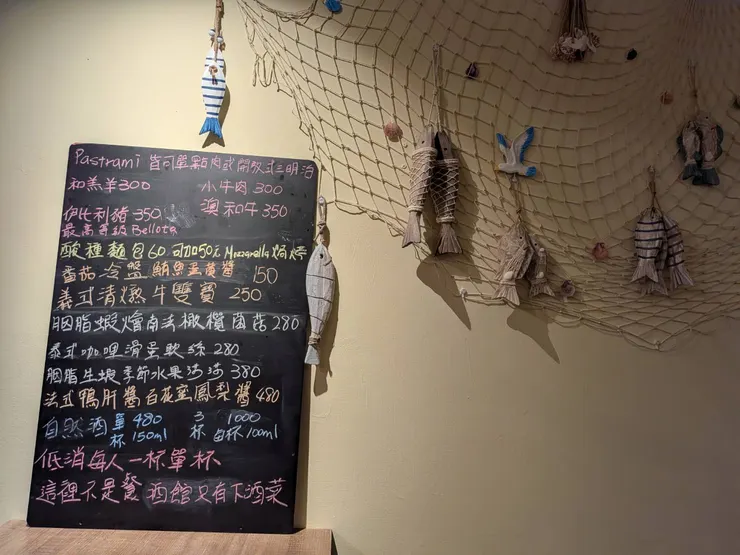 Pastrami 皆可單點肉或開放式三明治
和羔羊300 小牛肉 300
伊比利豬350 澳和牛 350
最高等級 Bellota
酸種麵包60 可加50元 Mozzarella 焗烤
番茄冷盤 鯷魚蛋黃醬 150
義式清燉牛雙寶 250
胭脂蝦燴南法橄欖菌菇 280
泰式咖哩滑蛋軟絲 280
胭脂生蝦季節水果莎莎 380
法式鴨肝醬百花蜜鳳梨醬 480
自然酒 單杯 480 150ml 3杯 1000 每杯100ml
低消每人一杯單杯
這裡不是餐 酒館只有下酒菜